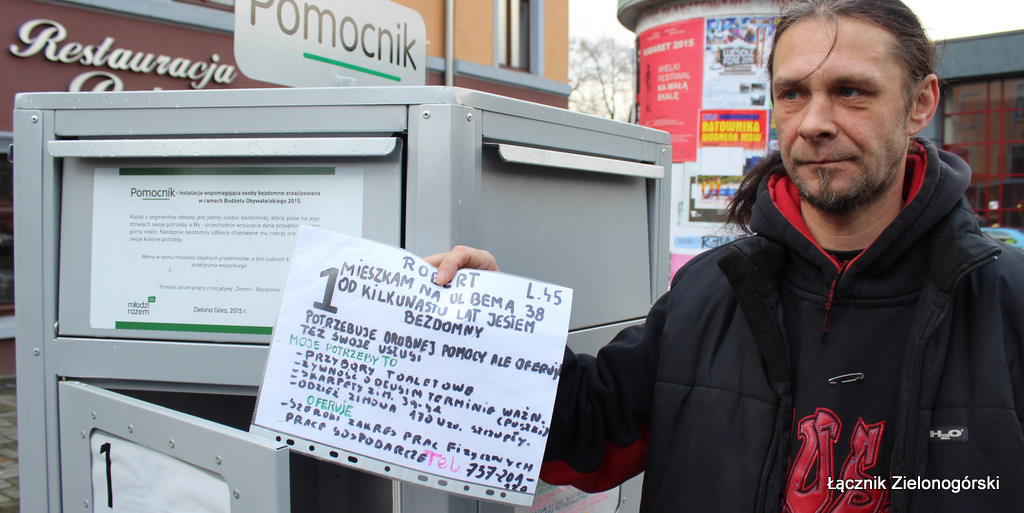 Restauracja
Pomocnik
KABARET 2015
WIELKI
FESTIWAL
NA MAŁĄ
SKALĘ
RATOWNIKA
WODNEGO MSW
Pomocnik - instalacja wspomagająca osoby bezdomne zrealizowana
w ramach Budżetu Obywatelskiego 2015.
Każdy z segmentów oddany jest jednej osobie bezdomnej, która pisze na jego
drzwiach swoje potrzeby, a Wy - przechodnie wrzucacie dane przedmioty
górny otwór. Następnie bezdomny odbiera ofiarowane mu rzeczy
swoje kolejne potrzeby.
Mamy w domu mnóstwo zbędnych przedmiotów, a tym ludziom
praktycznie wszystkiego
Pomysł zaczerpnięty z inicjatywy „Domni - Bezdomni”
młodzi
razem
Zielona Góra, 2015 r.
ROBERT L.45
1 MIESZKAM NA UL BEMA 38
OD KILKUNASTU LAT JESTEM
BEZDOMNY
POTRZEBUJE DROBNEJ POMOCY ALE OFERUJE
TEŻ SWOJE USŁUGI
MOJE POTRZEBY TO
- PRZYBORY TOALETOWE
- ŻYWNOŚĆ O DŁUGIM TERMINIE WAŻN.
(PUSZKI)
- SKARPETY ZIM.
- ODZIEŻ ZIMOWA 170 WZR. SZCZUPŁY.
OFERUJE
- SZEROKI ZAKRES PRAC FIZYCZNYCH
PRACE GOSPODARCZE Tel. 737-201-
1
H2O
Łącznik Zielonogórski